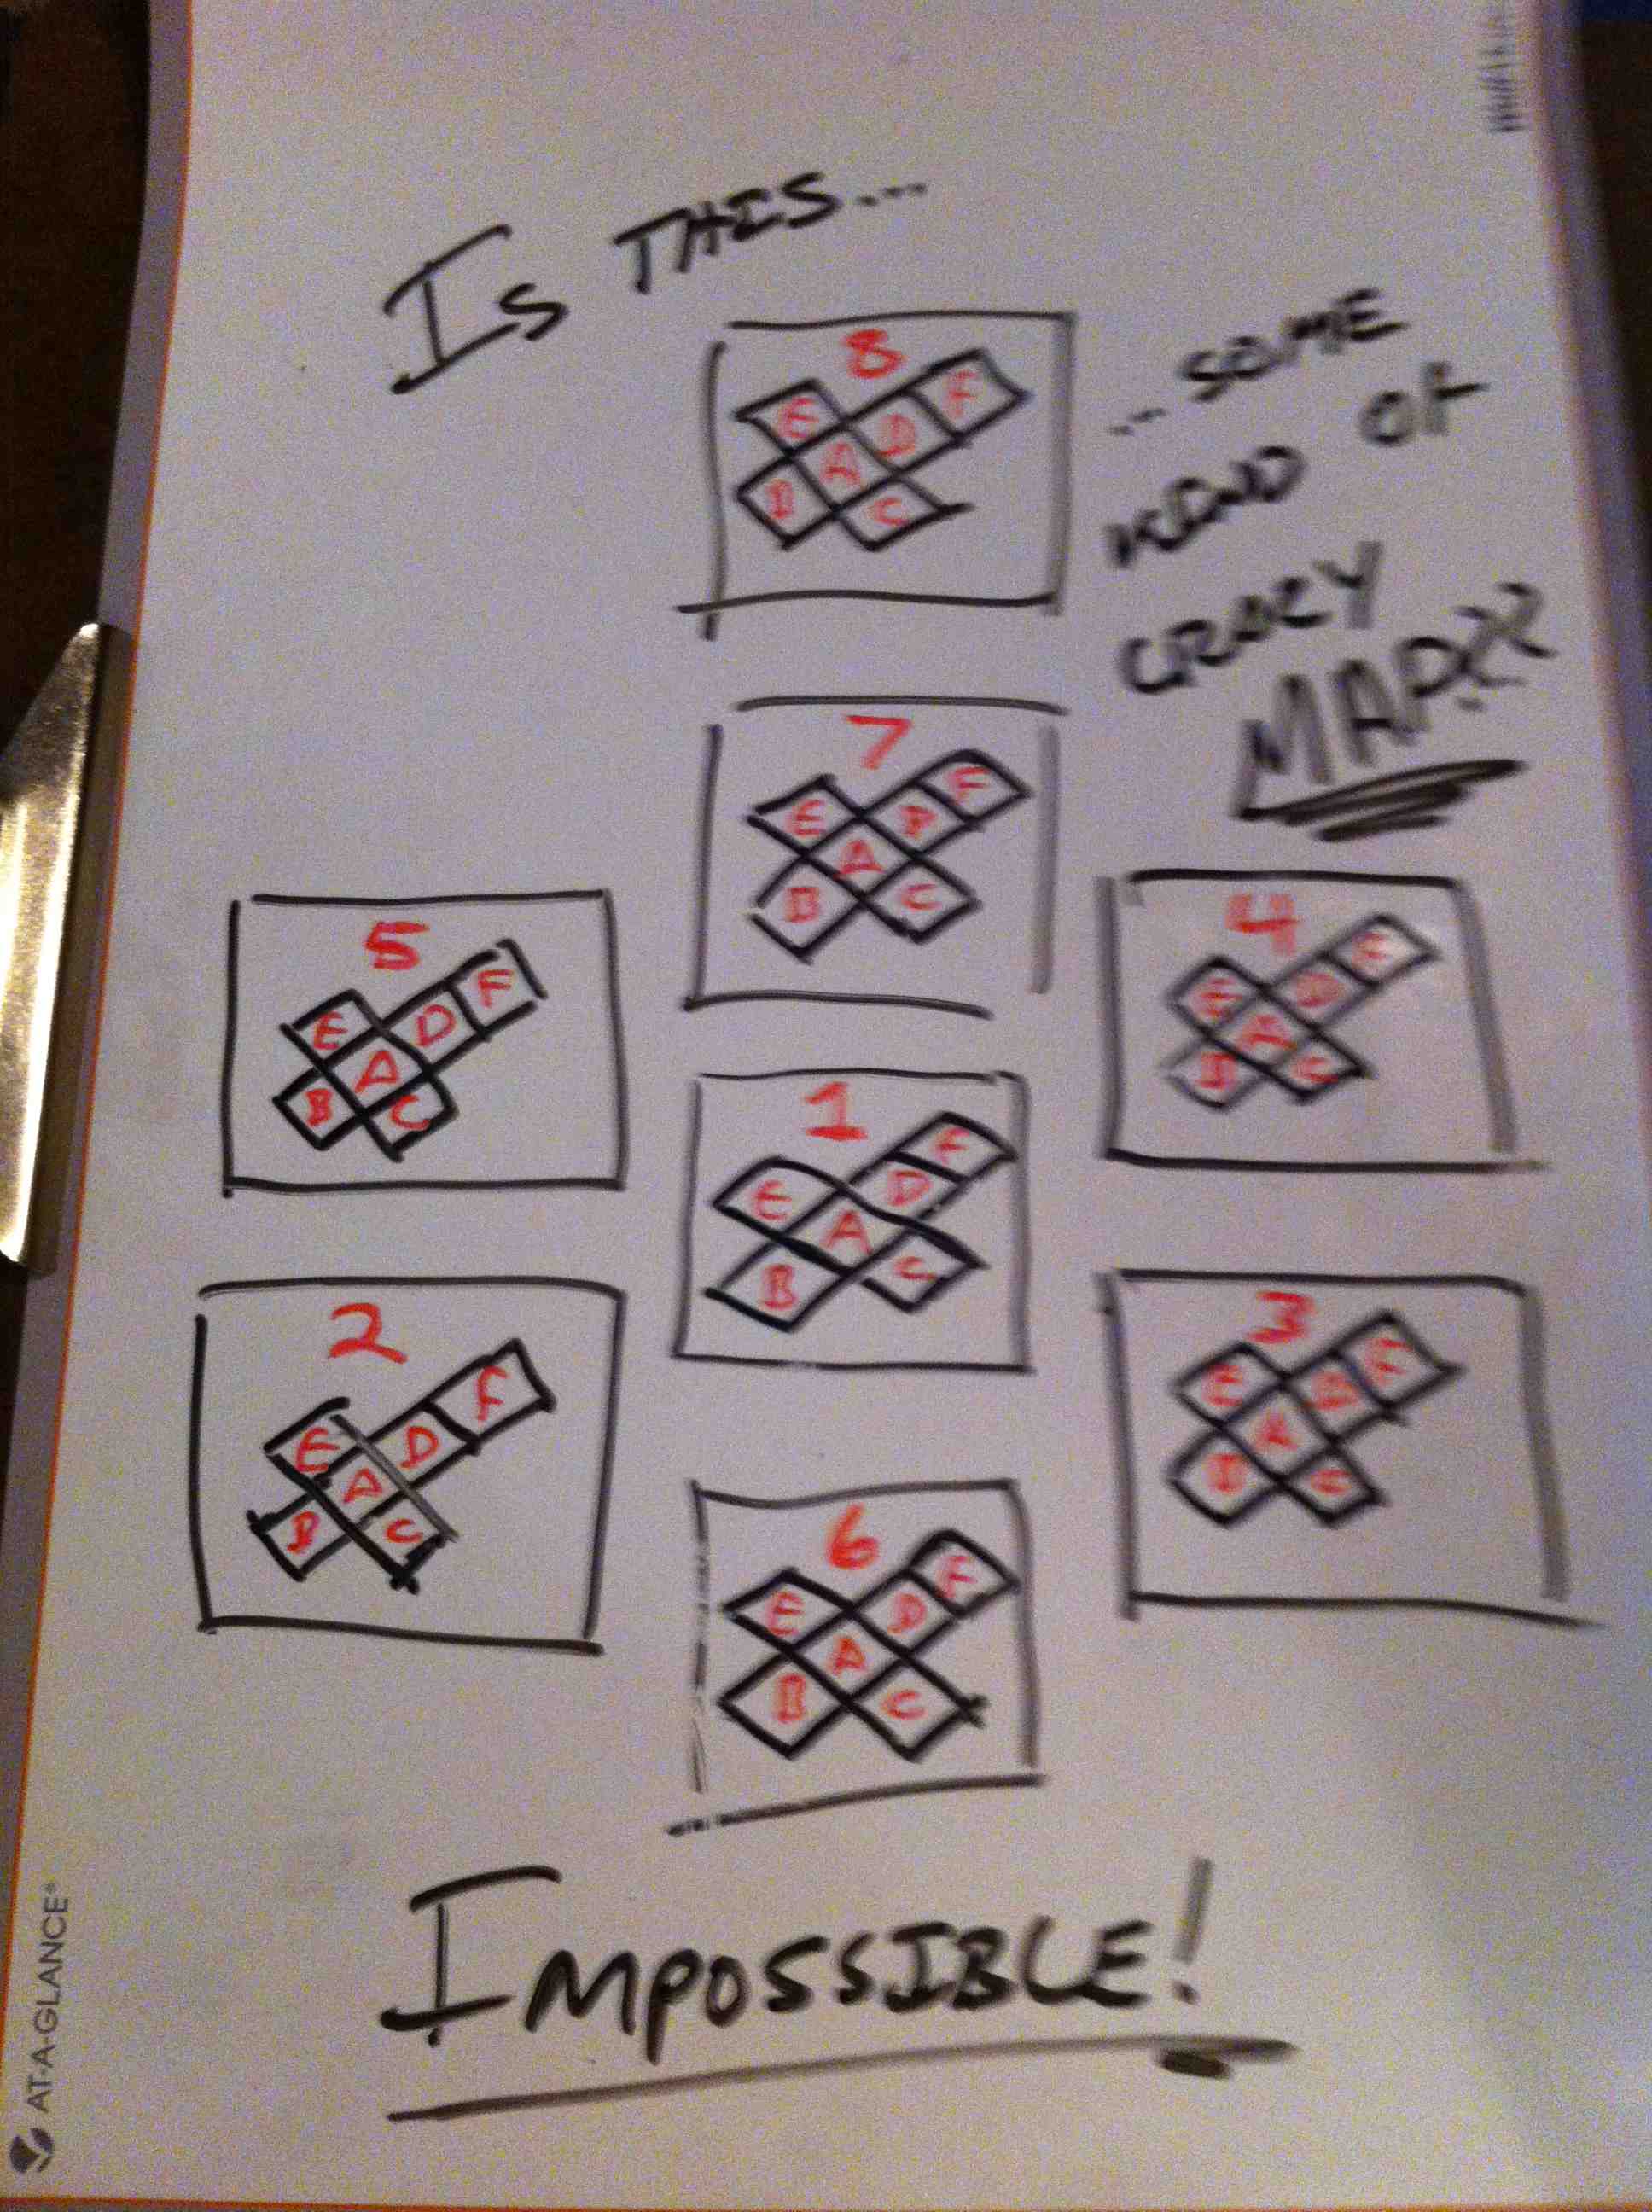 Is THIS...
...SOME
KIND OF
CRAZY
MAP??
8
E D F
A
B C
7
E D F
A
B C
5
E D F
A
B C
4
E D F
A
B C
1
E D F
A
B C
2
E D F
A
B C
3
E D F
A
B C
6
E D F
A
B C
IMPOSSIBLE!
AT-A-GLANCE®